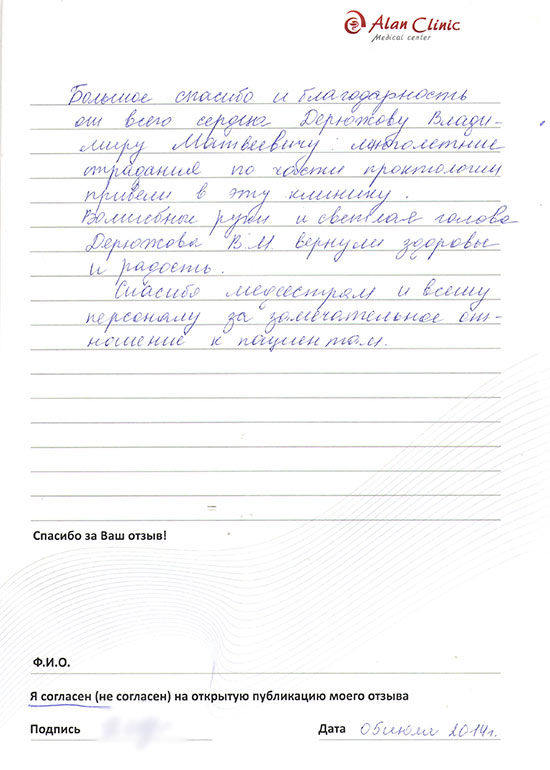 Alan Clinic
Medical center
Большое спасибо и благодарность
от всего сердца Дерюжову Влади-
миру Матвеевичу: многолетние
страдания по части проктологии
привели в эту клинику.
Волшебные руки и светлая голова
Дерюжова В.М. вернули здоровье
и радость.
Спасибо медсестрам и всему
персоналу за замечательное от-
ношение к пациентам.
Спасибо за Ваш отзыв!
Ф.И.О.
Я согласен (не согласен) на открытую публикацию моего отзыва
Подпись Дата 05 июля 2014г.